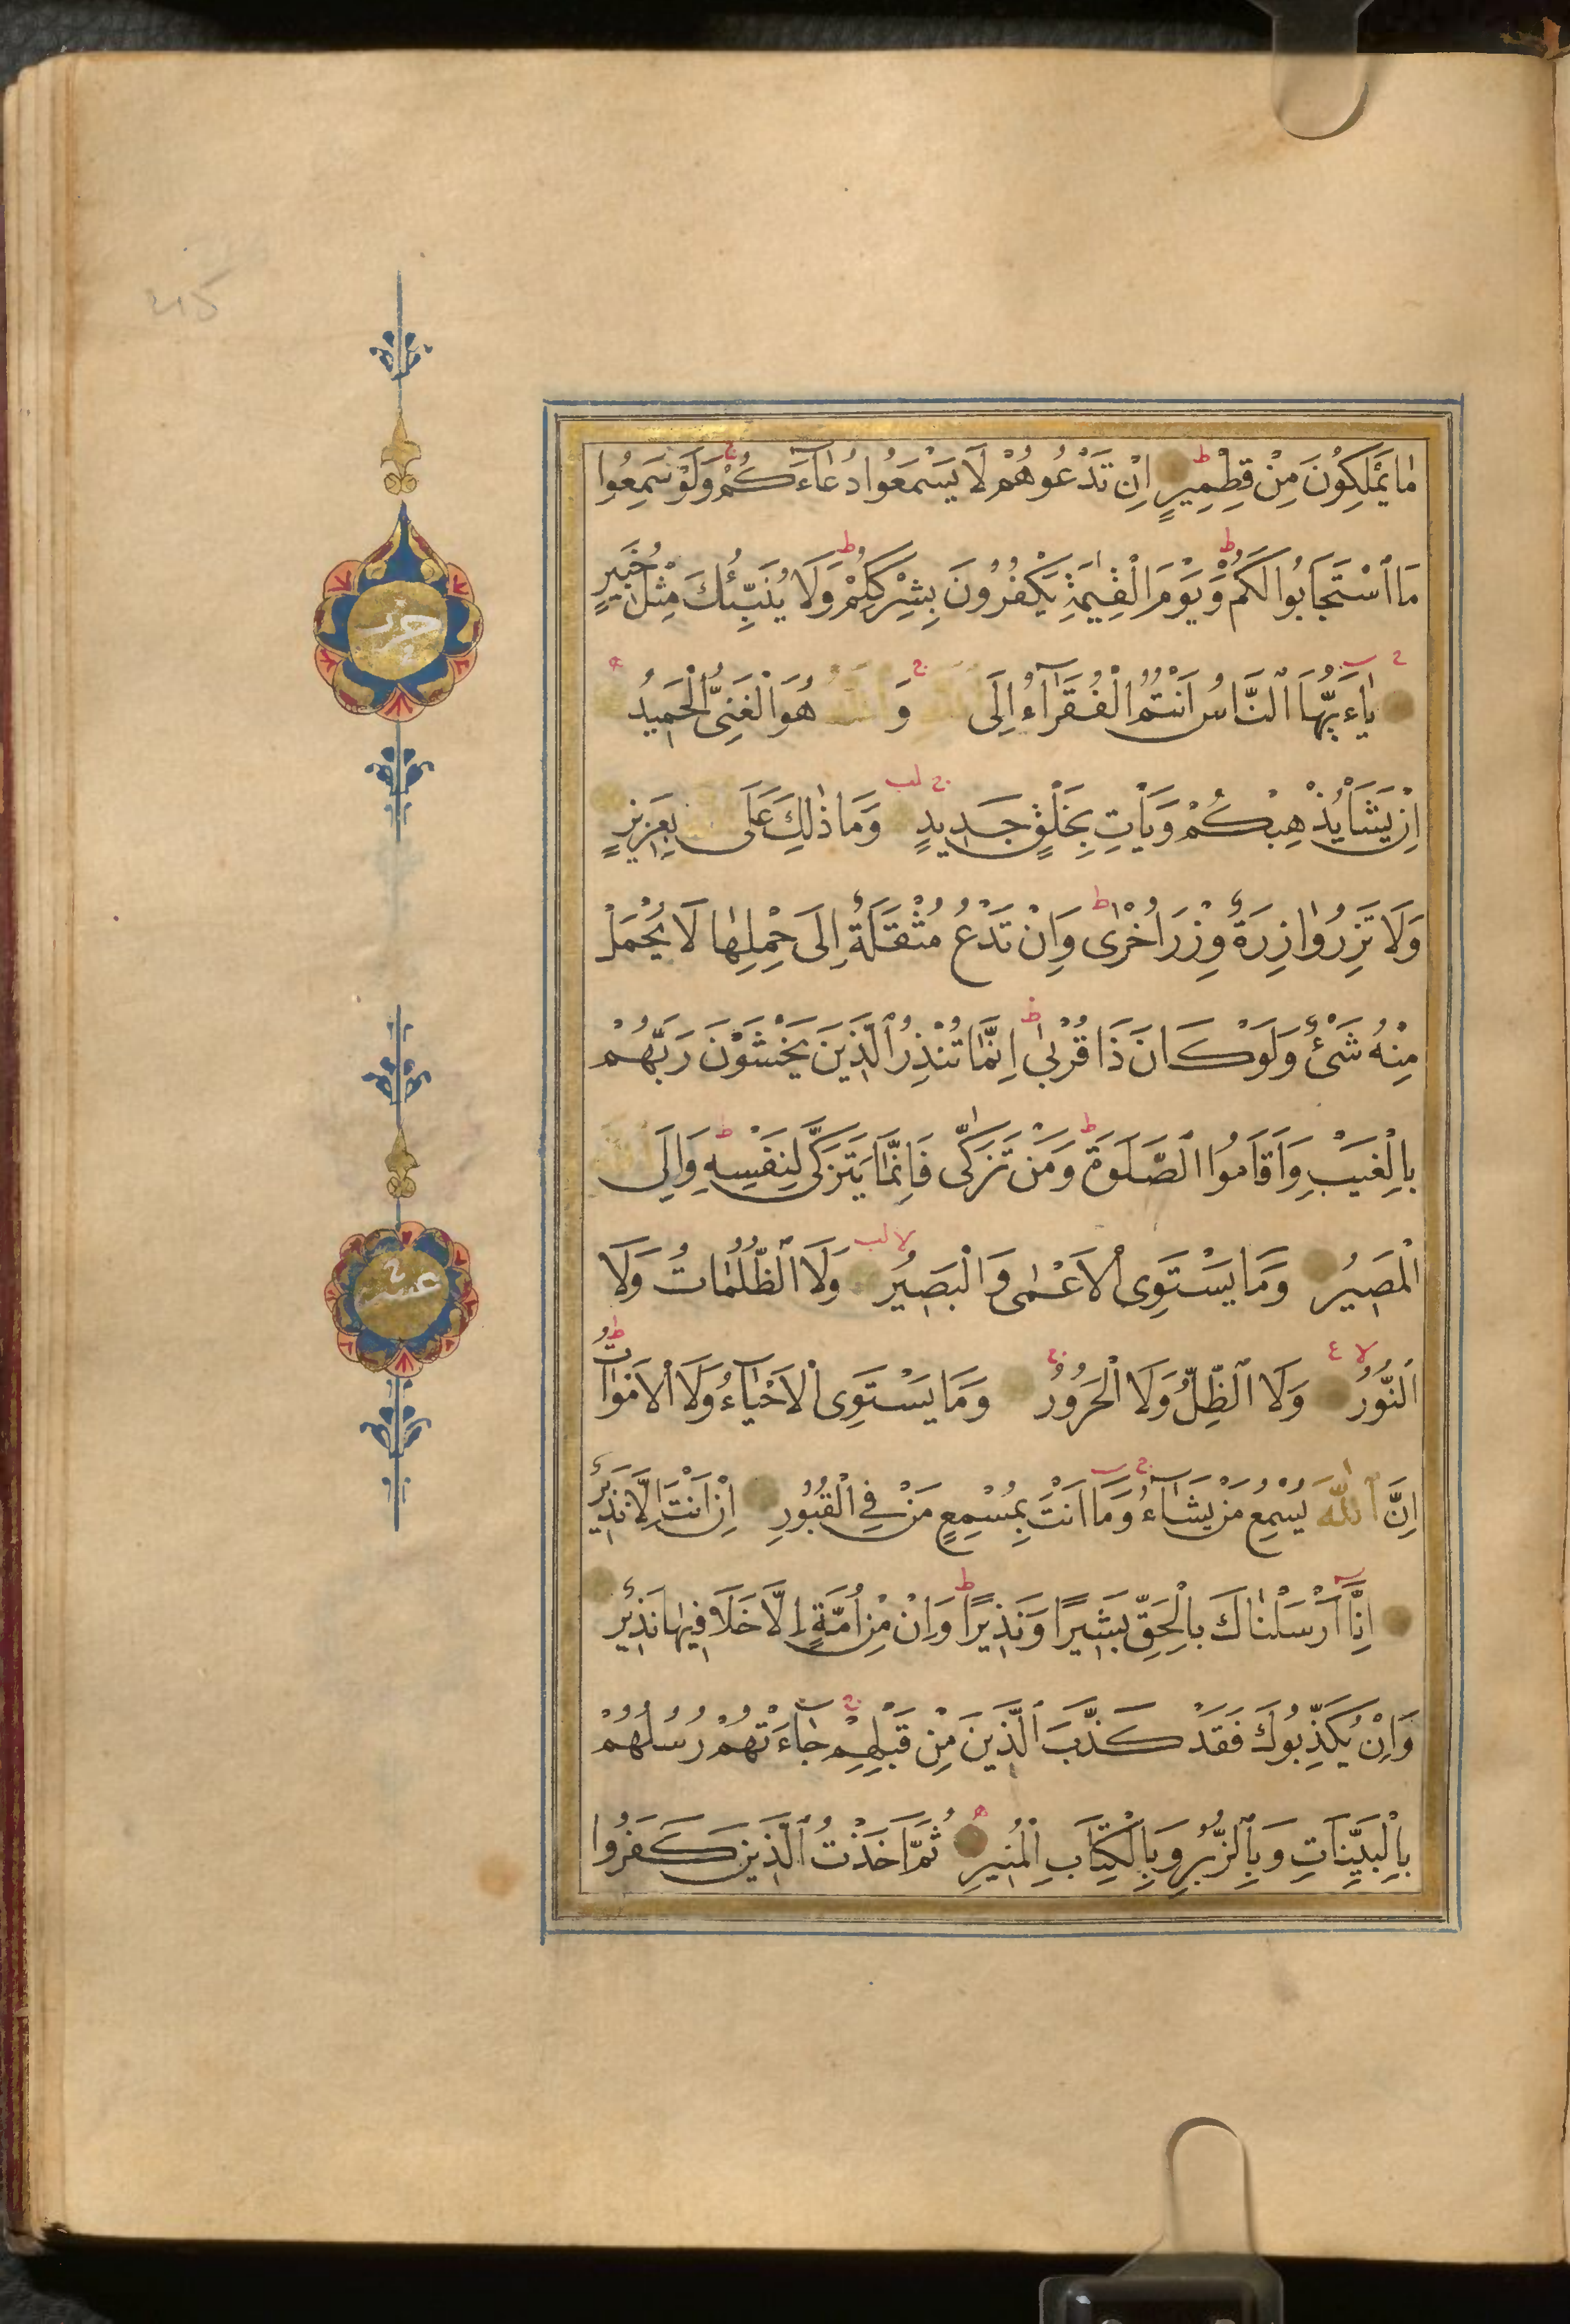 مَا يَمْلِكُونَ مِنْ قِطْمِيرٍ اِنْ تَدْعُوهُمْ لَا يَسْمَعُوا دُعَاءَكُمْ وَلَوْ سَمِعُوا
مَا اسْتَجَابُوا لَكُمْ وَيَوْمَ الْقِيٰمَةِ يَكْفُرُونَ بِشِرْكِكُمْ وَلَا يُنَبِّئُكَ مِثْلُ خَبِيرٍ
يَاءَيُّهَا النَّاسُ اَنْتُمُ الْفُقَرَاءُ اِلَى اللّٰهِ وَاللّٰهُ هُوَ الْغَنِىُّ الْحَمِيدُ
اِنْ يَشَأْ يُذْهِبْكُمْ وَيَأْتِ بِخَلْقٍ جَدِيدٍ وَمَا ذٰلِكَ عَلَى اللّٰهِ بِعَزِيزٍ
وَلَا تَزِرُ وَازِرَةٌ وِزْرَ اُخْرٰى وَاِنْ تَدْعُ مُثْقَلَةٌ اِلَى حِمْلِهَا لَا يُحْمَلْ
مِنْهُ شَىْءٌ وَلَوْ كَانَ ذَا قُرْبٰى اِنَّمَا تُنْذِرُ الَّذِينَ يَخْشَوْنَ رَبَّهُمْ
بِالْغَيْبِ وَاَقَامُوا الصَّلَوةَ وَمَنْ تَزَكّٰى فَاِنَّمَا يَتَزَكّٰى لِنَفْسِهِ وَاِلَى اللّٰهِ
الْمَصِيرُ وَمَا يَسْتَوِى الْاَعْمٰى وَالْبَصِيرُ وَلَا الظُّلُمَاتُ وَلَا
النُّورُ وَلَا الظِّلُّ وَلَا الْحَرُورُ وَمَا يَسْتَوِى الْاَحْيَاءُ وَلَا الْاَمْوَاتُ
اِنَّ اللّٰهَ يُسْمِعُ مَنْ يَشَاءُ وَمَا اَنْتَ بِمُسْمِعٍ مَنْ فِى الْقُبُورِ اِنْ اَنْتَ اِلَّا نَذِيرٌ
اِنَّا اَرْسَلْنَاكَ بِالْحَقِّ بَشِيرًا وَنَذِيرًا وَاِنْ مِنْ اُمَّةٍ اِلَّا خَلَا فِيهَا نَذِيرٌ
وَاِنْ يُكَذِّبُوكَ فَقَدْ كَذَّبَ الَّذِينَ مِنْ قَبْلِهِمْ جَاءَتْهُمْ رُسُلُهُمْ
بِالْبَيِّنَاتِ وَبِالزُّبُرِ وَبِالْكِتَابِ الْمُنِيرِ ثُمَّ اَخَذْتُ الَّذِينَ كَفَرُوا
حزب
عشر